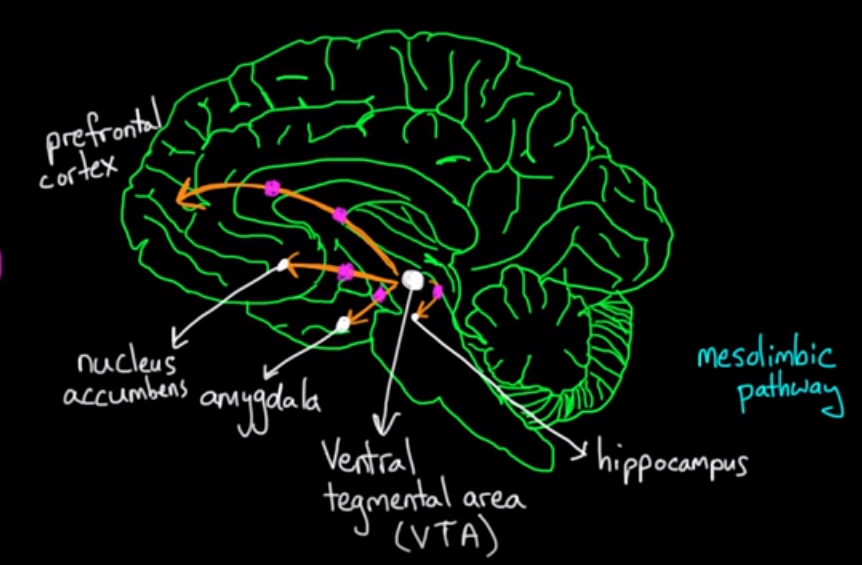 prefrontal
cortex
nucleus
accumbens
amygdala
Ventral
tegmental area
(VTA)
hippocampus
mesolimbic
pathway